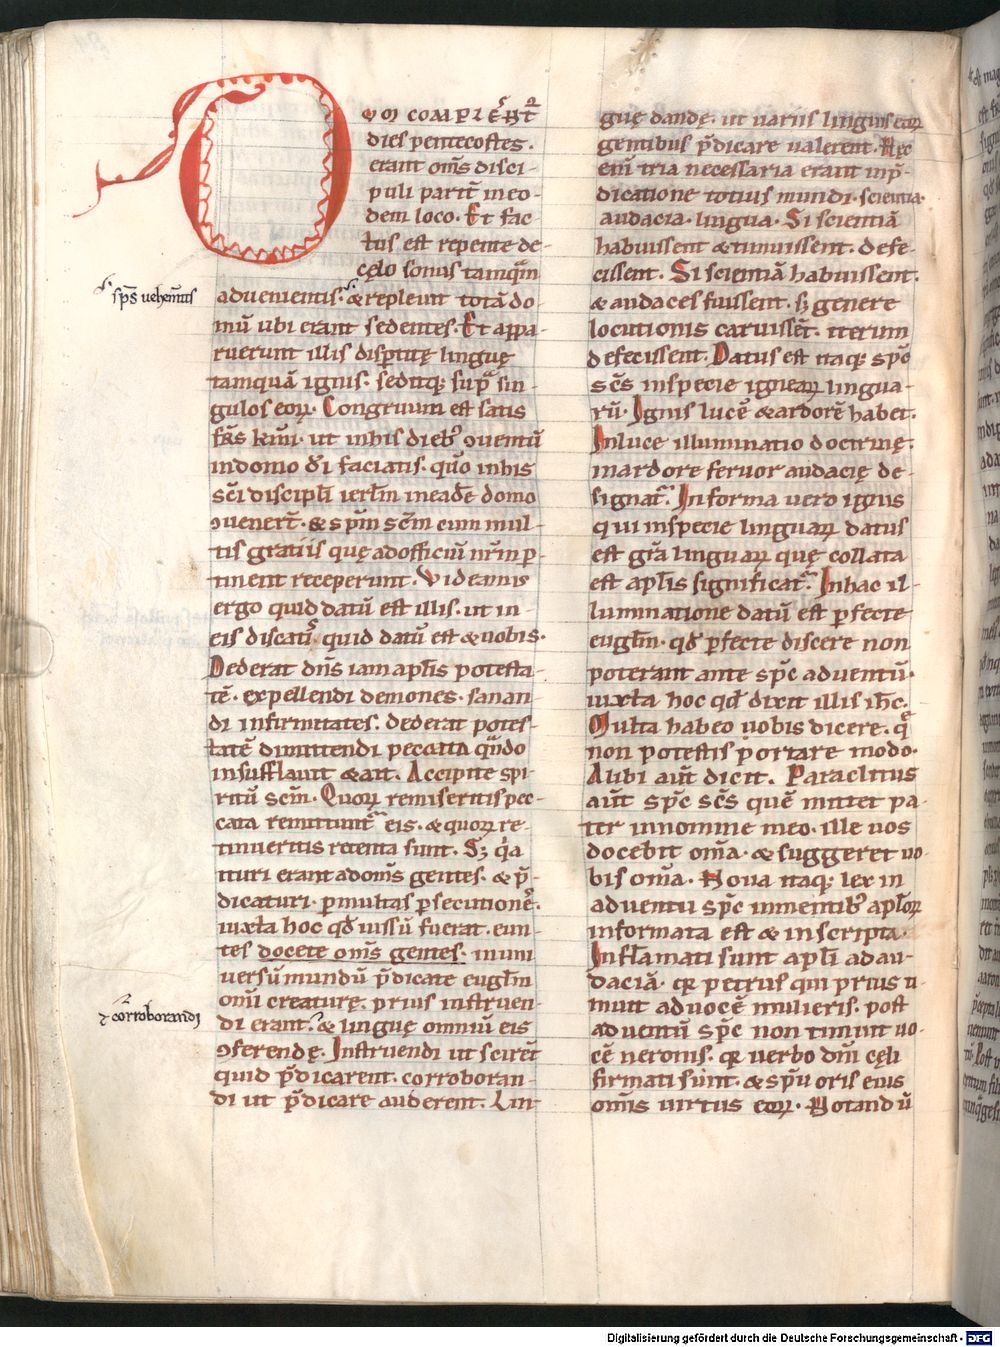 D
um complerentur
dies pentecostes.
erant om̅s disci-
puli parit̅ in eo-
dem loco. Et fac-
tus est repente de-
cęlo sonus tamqua̅
advenientis. & repleuit tota̅ do-
mu̅ ubi erant sedentes. Et appa-
ruerunt illis disp̅titę linguę
tamqua̅ ignis. seditq; sup̅ sin-
gulos eoꝝ. Congruum est satis
fr̅s km̅i. ut in his dieb; ꝯuentu̅
in domo d̅i faciatis. quo̅ in his
sc̅i discipl̅i ierl̅m in eade̅ domo
ꝯuener̅t. & sp̅m sc̅m cum mul-
tis gratiis quę ad officiu̅ nr̅m p̲-
tinent receperunt. Videamus
ergo quid datu̅ est illis. ut in
eis discat᷑ quid datu̅ est & uobis.
Dederat dn̅s iam apl̅is potesta-
te̅. expellendi demones. sanan-
di infirmitates. dederat potes-
tate̅ dimittendi peccata qn̅do
insufflauit & ait. Accipite spi-
ritu̅ sc̅m. Quoꝝ remiseritis pec-
cata remittunt᷑ eis. & quoꝝ re-
tinueritis retenta sunt. Sꝫ q̅a
ituri erant ad om̅s gentes. & p̅-
dicaturi. p̲ multas p̲secutione̅.
iuxta hoc qd̅ iussu̅ fuerat. eun-
tes docete om̅s gentes. in uni
uersu̅ mundu̅ p̅dicate eugl̅m
om̅i creaturę. prius instruen-
di erant. & linguę omniu̅ eis
ꝯferendę. Instruendi ut scire̅t
quid p̅dicarent. corroboran-
di ut p̅dicare auderent. Lin-
sp̅s uehem̅tis
& corroborandi
guę dandę. ut uariis linguis eaꝝ
gentibus p̅dicare ualerent. Hęc
eni̅ tria necessaria erant in p̅-
dicatione totius mundi. scientia.
audacia. lingua. Si scientia̅
habuissent & timuissent. defe-
cissent. Si scientia̅ habuissent.
& audaces fuissent. sꝫ genere
locutionis caruisse̅t. iterum
defecissent. Datus est itaq; sp̅c
sc̅s in specie igneaꝝ lingua-
ru̅. Ignis luce̅ & ardore̅ habet.
In luce illuminatio doctrinę.
in ardore feruor audacię de-
signat᷑. In forma uero ignis
qui in specie linguaꝝ datus
est gr̅a linguaꝝ quę collata
est apl̅is significat᷑. In hac il-
luminatione datu̅ est p̲fecte
eugl̅m. qd̅ p̲fecte discere non
poterant ante sp̅c aduentu̅.
iuxta hoc qd̅ dixit illis ih̅c.
Multa habeo uobis dicere. q̅
non potestis portare modo.
Alibi aut̅ dicit. Paraclitus
aut̅ sp̅c sc̅s que̅ mittet pa-
ter in nomine meo. ille uos
docebit om̅a. & suggeret uo-
bis om̅a. Noua itaq; lex in
aduentu sp̅c in mentib; apl̅oꝝ
informata est & inscripta.
Inflamati sunt apl̅i ad au-
dacia̅. qr̅ petrus qui prius ti-
muit ad uoce̅ mulieris. post
aduentu̅ sp̅c non timuit uo-
ce̅ neronis. qr̅ uerbo dn̅i cęli
firmati sunt. & sp̅u oris eius
om̅is uirtus eoꝝ. Notandu̅
Digitalisierung gefördert durch die Deutsche Forschungsgemeinschaft - DFG